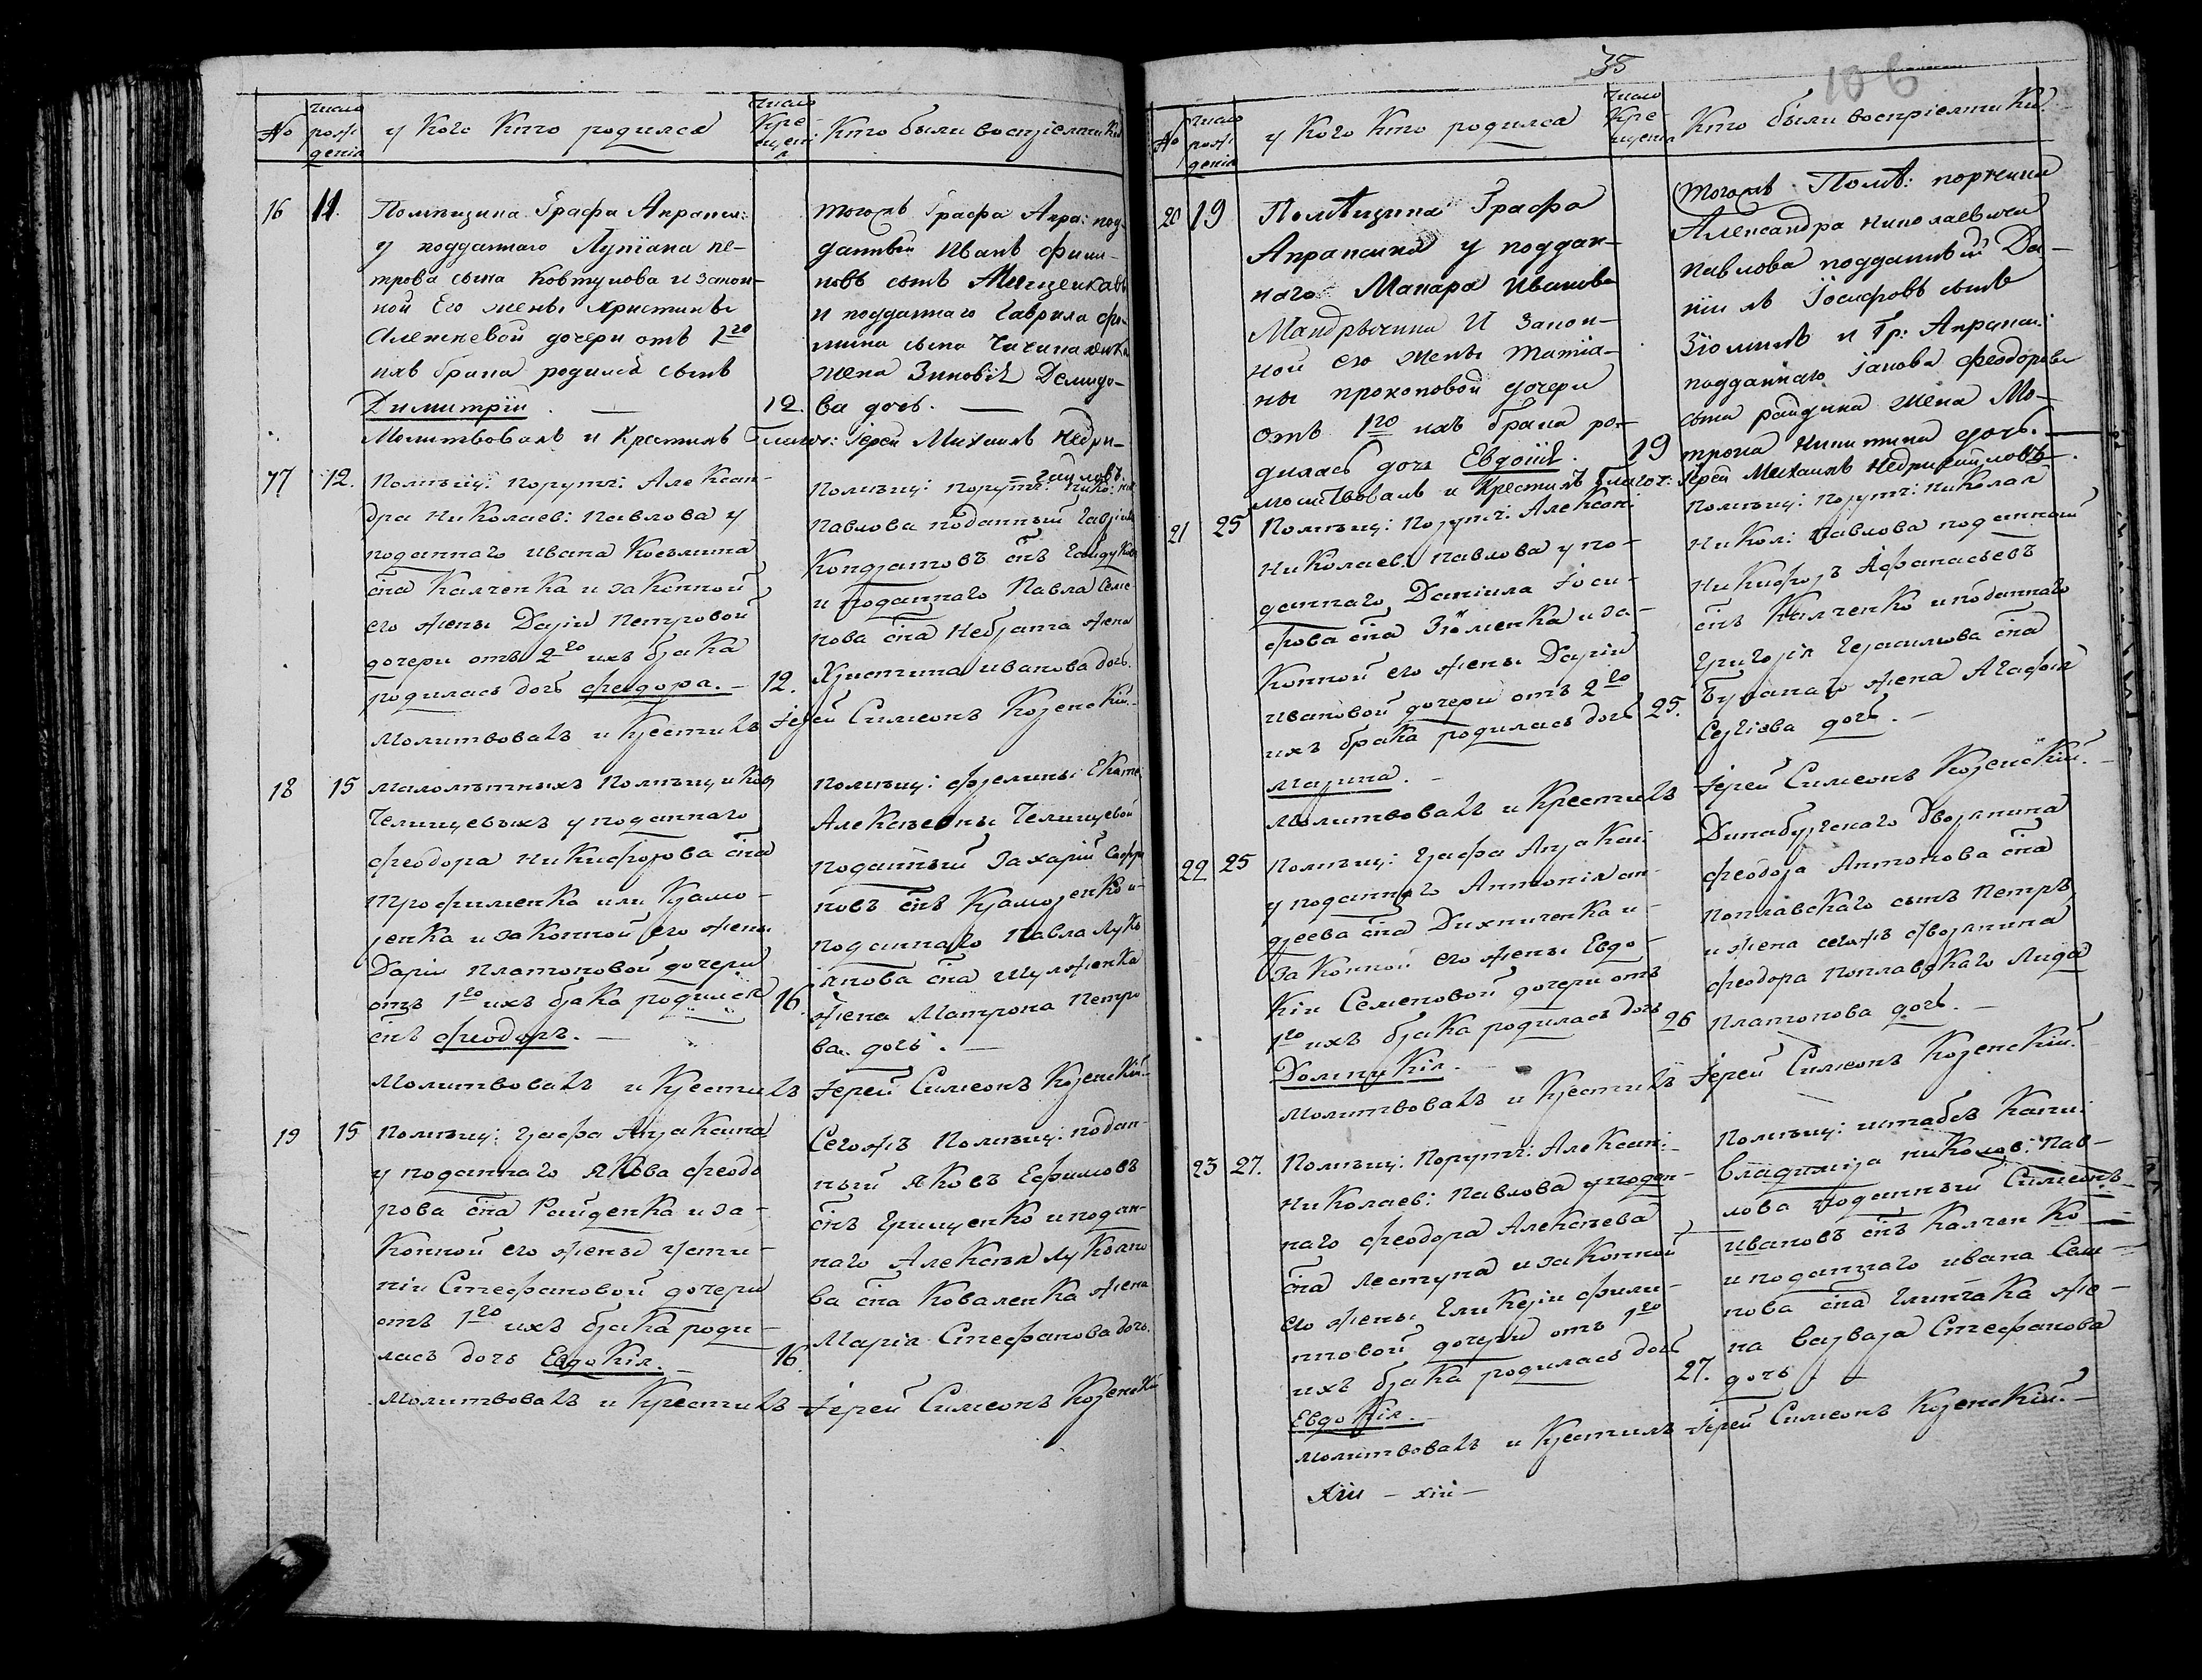 No
число рождения
у кого кто родился
число крещения
Кто были восприемники
16
11.
Помѣщика Графа Апракси:
у подданнаго Лукіана Пе-
трова сына Ковтунова и закон-
ной Его жены Христины
Алексѣевой дочери отъ 1го
ихъ брака родился сынъ
Димитрій. —
12.
тогожъ Графа Апра: под-
данный Иванъ
новъ сынъ
и подданнаго Гаврила
мина сына
жена Зиновія Демидо-
ва дочь. —
Молитвовалъ и Крестилъ Благоч: Іерей Михаилъ Недри-
=гайловъ.
17
12.
Помѣщ: порутч: Алексан-
дра Николаев: Павлова у
поданнаго Ивана Косьмина
сна Калченка и законной
его жены Даріи Петровой
дочери отъ 2го ихъ брака
родилась дочь Феодора. —
12.
Помѣщ: порутч: Нико: Ник
Павлова поданный Гавріилъ
Кондратовъ снъ Гайдуковъ
и поданнаго Павла Семе
нова сна Небрата жена
Христина Иванова дочь.
Молитвовалъ и Крестилъ Іерей Симеонъ Козенскій.
18
15
Малолѣтныхъ Помѣщиковъ
Челищевыхъ у поданнаго
Феодора Никифорова сна
Трофименка или Крамо-
ренка и законной его жены
Даріи Платоновой дочери
отъ 1го ихъ брака родился
снъ Феодоръ. —
16.
Помѣщ: Екате:
Алексѣевны Челищевой
поданный Захарій Софро
новъ снъ Крамаренко и
поданнаго Павла Лукь
янова сна Шулженка
жена Матрона Петро
ва дочь. —
Молитвовалъ и Крестилъ Іерей Симеонъ Козенскій.
19
15
Помѣщ: Графа Апраксина
у поданнаго Якова Феодо
рова сна Райденка и за-
конной его жены Усти-
ніи Стефановой дочери
отъ 1го ихъ брака роди-
лась дочь Евдокія. —
16.
Сегожъ Помѣщ: подан-
ный Яковъ Ефимовъ
снъ Грищенко и подан-
наго Алексѣя Лукьяно
ва сна Коваленка жена
Марія Стефанова дочь.
Молитвовалъ и Крестилъ Іерей Симеонъ Козенскій
35
106
No
число рождения
у кого кто родился
число крещения
Кто были восприемники
20
19
Помѣщика Графа
Апраксина у поддан-
наго Макара Иванова
Мандрыкина И закон-
ной его жены Татіа-
ны Прокоповой дочери
отъ 1го ихъ брака ро-
дилась дочь Евдокія.
19
Тогожъ Помѣ: порткика
Александра Николаевича
Павлова подданный Да-
ніилъ Іосифовъ сынъ
Зіоминъ и Гр: Апракси:
подданнаго Іакова Феодорова
сына Райдина жена Ма-
трона Никитина дочь. —
Молитвовалъ и Крестилъ Благоч: Іерей Михаилъ Недригайловъ.
21
25
Помѣщ: Порутч: Алексан:
Николаев: Павлова у по-
даннаго Даніила Іоси-
фова сна Зіоменка и за-
конной его жены Даріи
Ивановой дочери отъ 2го
ихъ брака родилась дочь
Марина. —
25.
Помѣщ: Порутч: Николая
Никол: Павлова поданный
Никифоръ Афанасьевъ
снъ Калченко и поданнаго
Григорія Герасимова сна
жена Агафія
Сергіова дочь. —
Молитвовалъ и Крестилъ Іерей Симеонъ Козенскій. —
22
25
Помѣщ: Графа Апракси:
у поданнаго Антонія Ан-
дреева сна Дихниченка и
законной его жены Евдо-
кіи Семеновой дочери отъ
1го ихъ брака родилась дочь
Домникія. —
26
Динабургскаго Дворянина
Феодора Антонова сна
Поплавскаго сынъ Петръ,
и жена сегожъ Дворянина
Феодора Поплавскаго Лида
Платонова дочь. —
Молитвовалъ и Крестилъ Іерей Симеонъ Козенскій.
23
27.
Помѣщ: Порутч: Алексан:
Николаев: Павлова у подан-
наго Феодора Алексѣева
сна Лестуна и законной
его жены Гликеріи Фили-
пповой дочери отъ 1го
ихъ брака родилась дочь
Евдокія. —
27.
Помѣщ: штабсъ Капи:
Владимира Николов: Пав-
лова поданный Симеонъ
Ивановъ снъ Калченко
и поданнаго Ивана Сем-
нова сна Глинчака же-
на Варвара Стефанова
дочь. —
Молитвовалъ и Крестилъ Іерей Симеонъ Козенскій. —